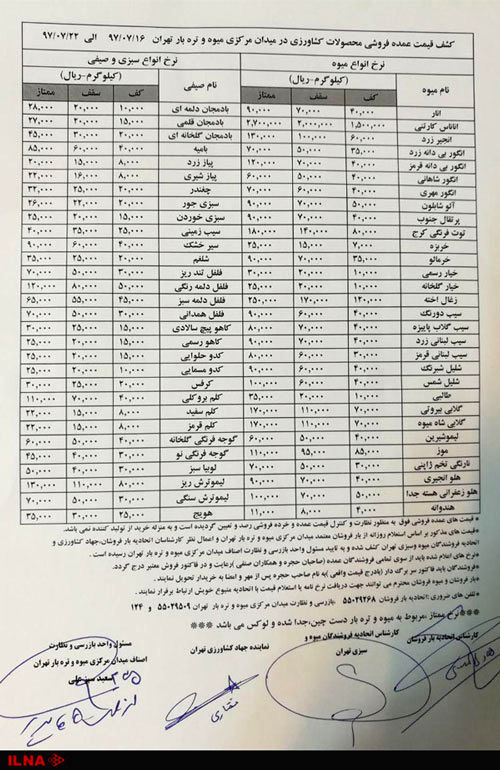 کشف قیمت عمده فروشی محصولات کشاورزی در میدان مرکزی میوه و تره بار تهران ۹۷/۰۷/۱۶ الی ۹۷/۰۷/۲۲
نرخ انواع میوه نرخ انواع سبزی و صیفی
نام میوه (کیلوگرم-ریال) نام صیفی (کیلوگرم-ریال)
کف سقف ممتاز کف سقف ممتاز
انار ۴۰,۰۰۰ ۷۰,۰۰۰ ۹۰,۰۰۰ بادمجان دلمه ای ۱۰,۰۰۰ ۲۰,۰۰۰ ۲۸,۰۰۰
آناناس کارتنی ۱,۵۰۰,۰۰۰ ۲,۰۰۰,۰۰۰ ۲,۷۰۰,۰۰۰ بادمجان قلمی ۱۵,۰۰۰ ۲۰,۰۰۰ ۲۷,۰۰۰
انجیر زرد ۶۰,۰۰۰ ۱۰۰,۰۰۰ ۱۳۰,۰۰۰ بادمجان گلخانه ای ۲۰,۰۰۰ ۳۰,۰۰۰ ۴۵,۰۰۰
انگور بی دانه زرد ۳۵,۰۰۰ ۵۰,۰۰۰ ۷۰,۰۰۰ بامیه ۴۰,۰۰۰ ۶۰,۰۰۰ ۸۵,۰۰۰
انگور بی دانه قرمز ۴۰,۰۰۰ ۷۰,۰۰۰ ۱۲۰,۰۰۰ پیاز زرد ۸,۰۰۰ ۱۵,۰۰۰ ۲۰,۰۰۰
انگور شاهانی ۴۰,۰۰۰ ۵۰,۰۰۰ ۶۰,۰۰۰ پیاز شیری ۸,۰۰۰ ۱۶,۰۰۰ ۲۲,۰۰۰
انگور مهری ۴۰,۰۰۰ ۶۰,۰۰۰ ۷۰,۰۰۰ چغندر ۲۰,۰۰۰ ۲۵,۰۰۰ ۳۲,۰۰۰
آلو شابلون ۵۰,۰۰۰ ۷۰,۰۰۰ ۹۰,۰۰۰ سبزی جور ۲۰,۰۰۰ ۲۲,۰۰۰ ۲۶,۰۰۰
پرتقال جنوب ۴۰,۰۰۰ ۷۰,۰۰۰ ۹۰,۰۰۰ سبزی خوردن ۱۵,۰۰۰ ۲۰,۰۰۰ ۲۵,۰۰۰
توت فرنگی کرج ۸۰,۰۰۰ ۱۴۰,۰۰۰ ۱۸۰,۰۰۰ سیب زمینی ۲۵,۰۰۰ ۳۵,۰۰۰ ۴۰,۰۰۰
خربزه ۷,۰۰۰ ۱۵,۰۰۰ ۲۵,۰۰۰ سیر خشک ۴۰,۰۰۰ ۶۰,۰۰۰ ۹۰,۰۰۰
خرمالو ۳۵,۰۰۰ ۷۰,۰۰۰ ۹۰,۰۰۰ شلغم ۲۰,۰۰۰ ۲۵,۰۰۰ ۳۵,۰۰۰
خیار رسمی ۱۰,۰۰۰ ۲۰,۰۰۰ ۳۰,۰۰۰ فلفل تند ریز ۳۰,۰۰۰ ۵۰,۰۰۰ ۷۰,۰۰۰
خیار گلخانه ۱۰,۰۰۰ ۲۰,۰۰۰ ۳۰,۰۰۰ فلفل دلمه رنگی ۵۰,۰۰۰ ۸۰,۰۰۰ ۱۲۰,۰۰۰
زغال اخته ۱۲۰,۰۰۰ ۱۷۰,۰۰۰ ۲۵۰,۰۰۰ فلفل دلمه سبز ۴۵,۰۰۰ ۵۵,۰۰۰ ۶۵,۰۰۰
سیب دورنگ ۴۰,۰۰۰ ۶۰,۰۰۰ ۹۰,۰۰۰ فلفل همدانی ۳۰,۰۰۰ ۵۰,۰۰۰ ۷۰,۰۰۰
سیب گلاب پاییزه ۴۰,۰۰۰ ۷۰,۰۰۰ ۸۰,۰۰۰ کاهو پیچ سالادی ۱۵,۰۰۰ ۲۵,۰۰۰ ۳۰,۰۰۰
سیب لبنانی زرد ۴۰,۰۰۰ ۵۰,۰۰۰ ۹۰,۰۰۰ کاهو رسمی ۱۵,۰۰۰ ۲۰,۰۰۰ ۲۵,۰۰۰
سیب لبنانی قرمز ۳۰,۰۰۰ ۶۰,۰۰۰ ۸۰,۰۰۰ کدو حلوایی ۱۵,۰۰۰ ۲۰,۰۰۰ ۳۵,۰۰۰
شلیل شبرنگ ۴۰,۰۰۰ ۶۰,۰۰۰ ۹۰,۰۰۰ کدو مسمایی ۱۰,۰۰۰ ۲۰,۰۰۰ ۲۵,۰۰۰
شلیل شمس ۴۰,۰۰۰ ۶۰,۰۰۰ ۱۰۰,۰۰۰ کرفس ۲۰,۰۰۰ ۲۵,۰۰۰ ۳۰,۰۰۰
طالبی ۱۰,۰۰۰ ۲۰,۰۰۰ ۳۵,۰۰۰ کلم بروکلی ۴۰,۰۰۰ ۷۰,۰۰۰ ۱۱۰,۰۰۰
گلابی بیروتی ۷۰,۰۰۰ ۱۱۰,۰۰۰ ۱۷۰,۰۰۰ کلم سفید ۸,۰۰۰ ۱۵,۰۰۰ ۲۲,۰۰۰
گلابی شاه میوه ۷۰,۰۰۰ ۱۱۰,۰۰۰ ۱۷۰,۰۰۰ کلم قرمز ۸,۰۰۰ ۱۵,۰۰۰ ۲۲,۰۰۰
لیموشیرین ۴۰,۰۰۰ ۵۰,۰۰۰ ۶۰,۰۰۰ گوجه فرنگی گلخانه ۴۰,۰۰۰ ۵۰,۰۰۰ ۶۰,۰۰۰
موز ۸۵,۰۰۰ ۹۵,۰۰۰ ۱۱۰,۰۰۰ گوجه فرنگی نو ۳۰,۰۰۰ ۴۰,۰۰۰ ۴۵,۰۰۰
نارنگی تخم ژاپنی ۳۰,۰۰۰ ۵۰,۰۰۰ ۷۰,۰۰۰ لوبیا سبز ۳۰,۰۰۰ ۴۰,۰۰۰ ۵۰,۰۰۰
هلو انجیری ۴۰,۰۰۰ ۷۰,۰۰۰ ۹۰,۰۰۰ لیموترش ریز ۸۰,۰۰۰ ۱۱۰,۰۰۰ ۱۳۰,۰۰۰
هلو زعفرانی هسته جدا ۵۰,۰۰۰ ۷۰,۰۰۰ ۱۰۰,۰۰۰ لیموترش سنگی ۳۰,۰۰۰ ۵۰,۰۰۰ ۷۰,۰۰۰
هندوانه ۴,۰۰۰ ۸,۰۰۰ ۱۱,۰۰۰ هویج ۲۵,۰۰۰ ۳۰,۰۰۰ ۳۵,۰۰۰
*قیمت های عمده فروشی فوق به منظور نظارت و کنترل قیمت عمده و خرده فروشی رصد و تعیین گردیده است و به منزله خرید از تولید کننده نمی باشد.
*قیمت های مذکور بر اساس استعلام روزانه از بار فروشان معتمد میدان مرکزی میوه و تره بار تهران و اعمال نظر کارشناسان اتحادیه بار فروشان،جهاد کشاورزی و
اتحادیه فروشندگان میوه وسبزی تهران کشف شده و به تایید مسئول واحد بازرسی و نظارت اصناف میدان مرکزی میوه و تره بار تهران رسیده است.
*نرخ های اعلام شده باید از سوی تمامی فروشندگان عمده (صاحبان حجره و همکاران صنفی) رعایت و در فاکتور فروش معتبر درج گردد.
*فروشندگان باید فاکتور سربرگ دار (بادرج قیمت واقعی)به نام صاحب حجره پس از مهر و امضا به خریدار تحویل نمایند.
*بار فروشان و میوه فروشان محترم می توانند جهت دریافت نرخ نامه یا استعلام قیمت با اتحادیه متبوع خویش ارتباط برقرار نمایند.
*تلفن های ضروری: اتحادیه بار فروشان ۵۵۰۲۹۲۶۸ بازرسی و نظارت میدان مرکزی میوه و تره بار تهران ۵۵۰۲۹۵۰۹ و ۱۲۴
***نرخ ممتاز،مربوط به میوه و تره بار دست چین،جدا شده و لوکس می باشد***
کارشناس اتحادیه بار فروشان کارشناس اتحادیه فروشندگان میوه و سبزی تهران نماینده جهاد کشاورزی تهران مسئول واحد بازرسی و نظارت
اصناف میدان مرکزی میوه و تره بار تهران
سعید سبزعلی
ILNA